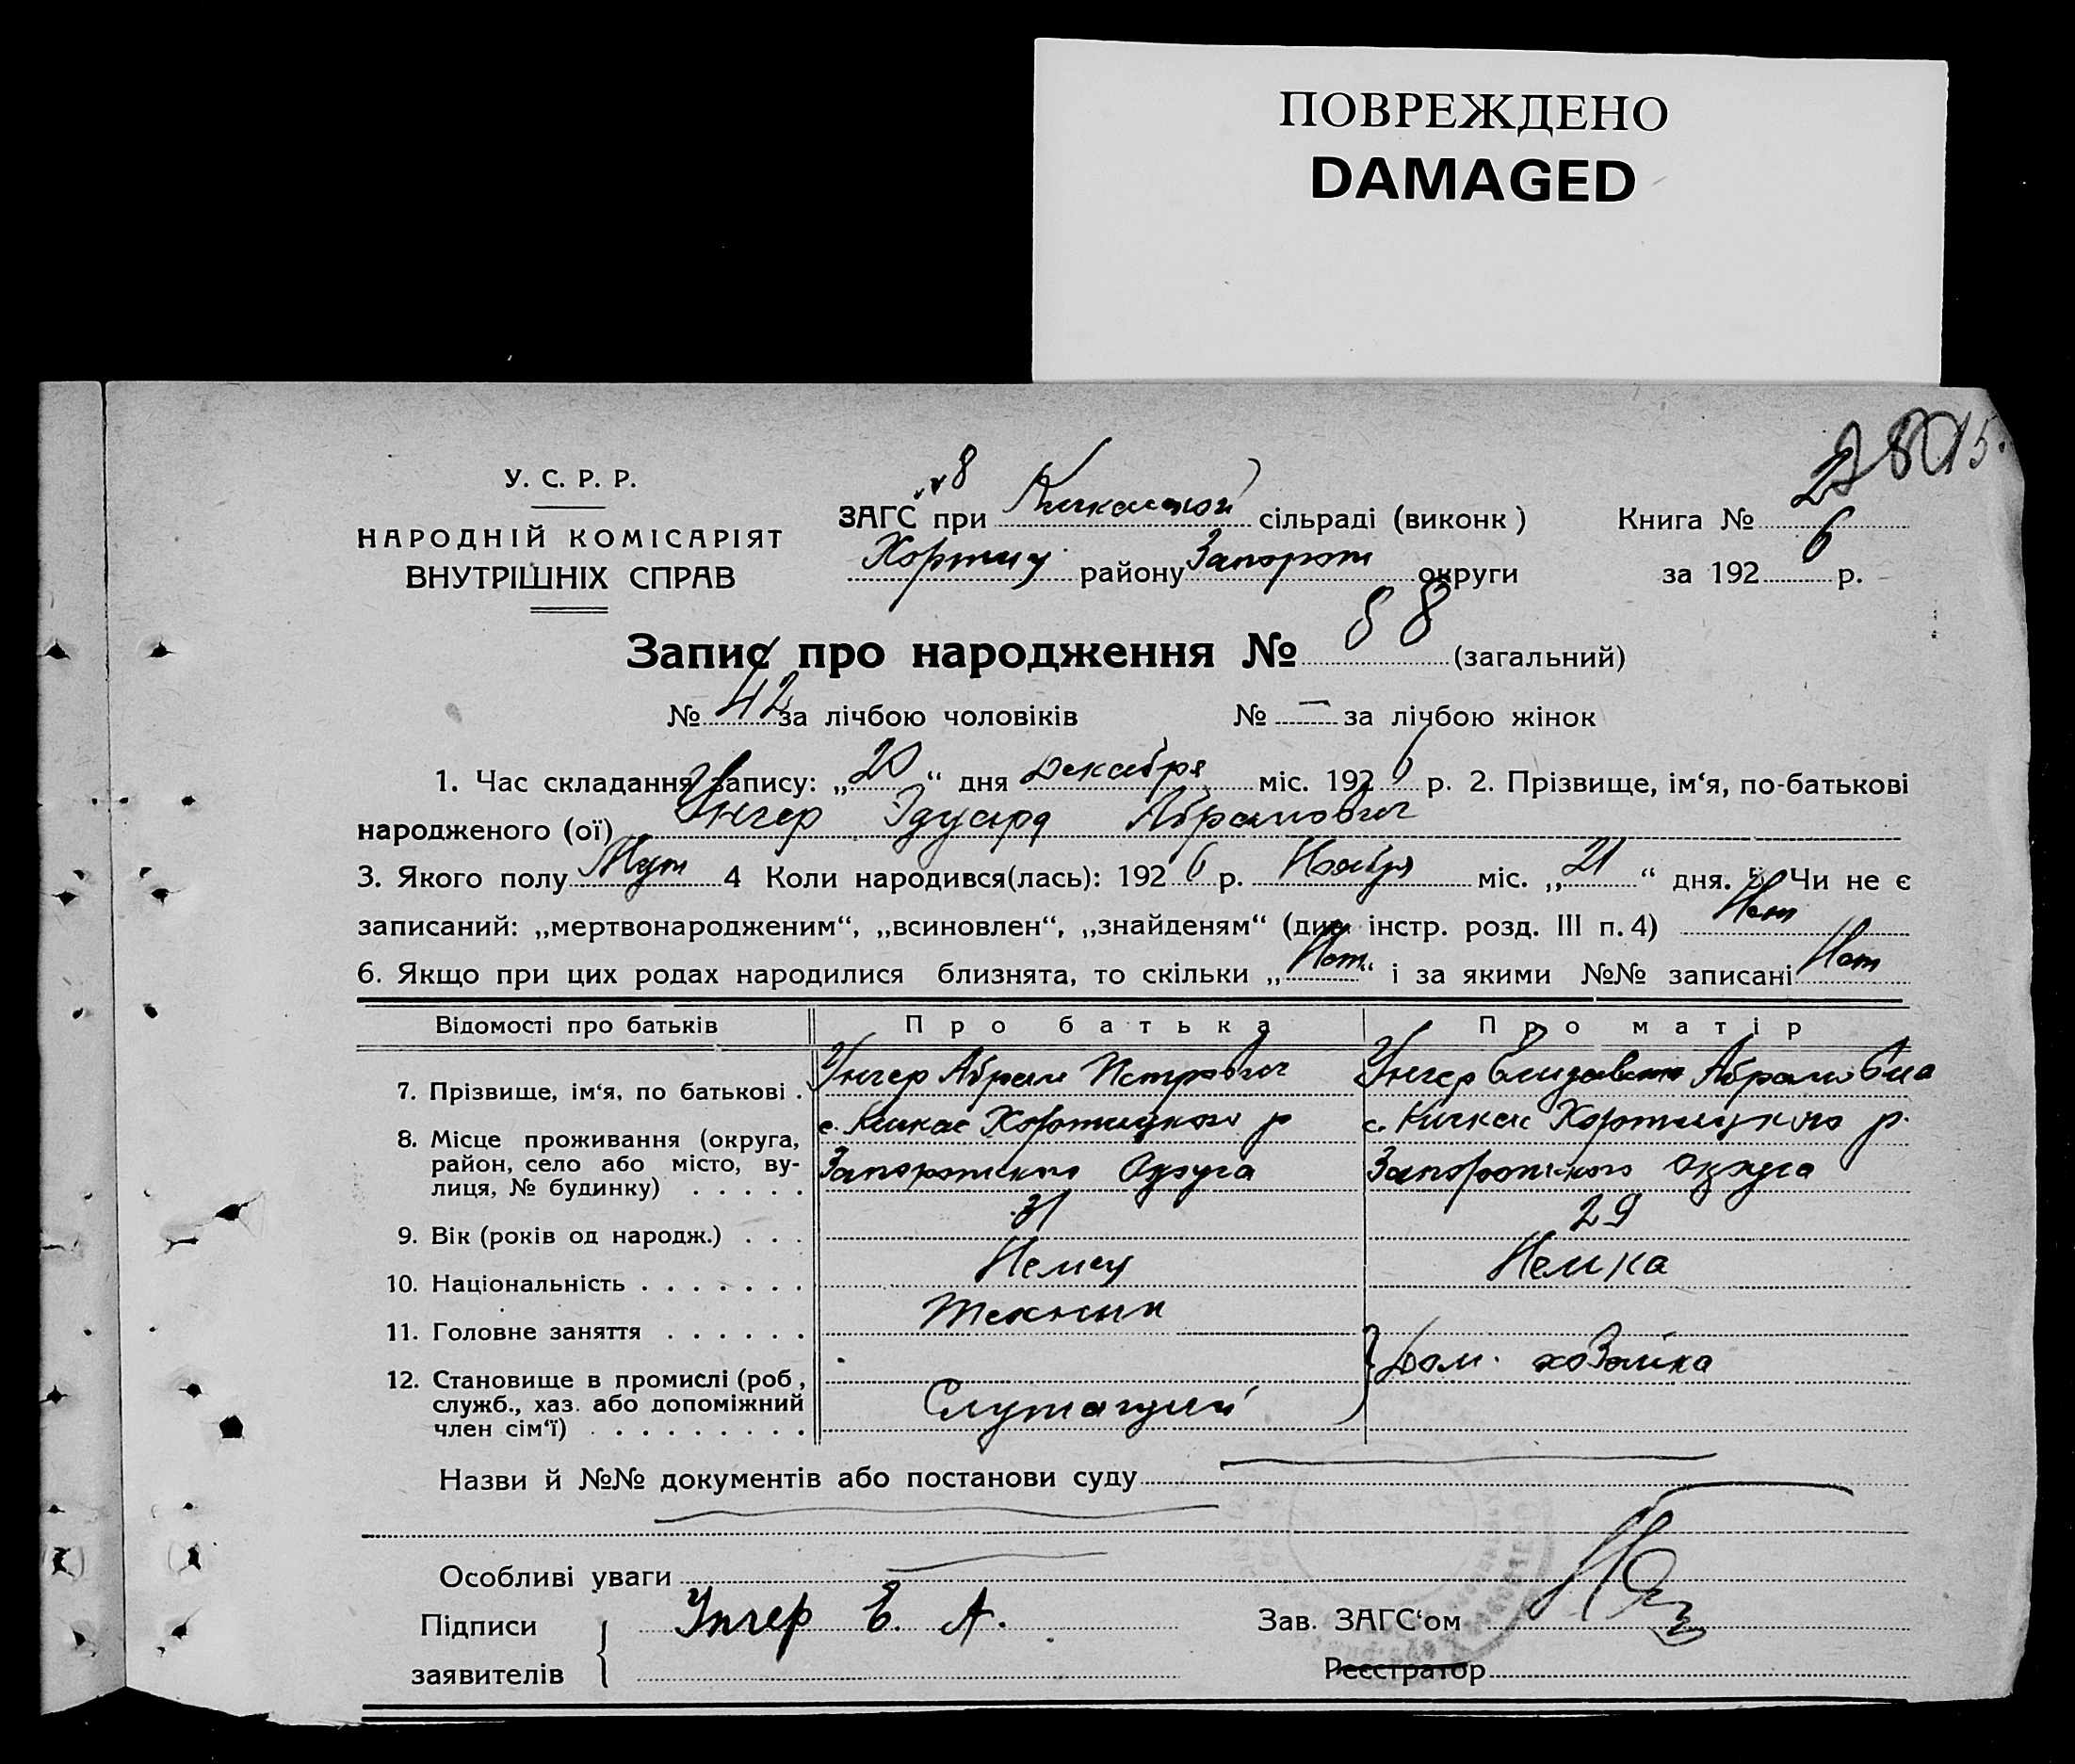 ПОВРЕЖДЕНО
DAMAGED
2815.
У. С. Р. Р.
НАРОДНІЙ КОМІСАРІЯТ
ВНУТРІШНІХ СПРАВ
ЗАГС при Кичкасской сільраді (виконк)
Книга № 2
Хортиц. району Запорож округи
за 1926 р.
Запис про народження № 88 (загальний)
№ 42 за лічбою чоловіків № — за лічбою жінок
1. Час складання запису: „20“ дня Декабря міс. 1926 р. 2. Прізвище, ім‘я, по-батькові
народженого (ої) Унгер Эдуард Абрамович
3. Якого полу Муж 4 Коли народився(лась): 1926 р. Ноября міс. „21“ дня. 5. Чи не є
записаний: „мертвонародженим“, „всиновлен“, „знайденям“ (див. інстр. розд. III п. 4) Нет
6. Якщо при цих родах народилися близнята, то скільки „Нет“ і за якими №№ записані Нет
Відомості про батьків Про батька Про матір
7. Прізвище, ім‘я, по батькові . Унгер Абрам Петрович Унгер Елизавета Абрамовна
8. Місце проживання (округа, район, село або місто, вулиця, № будинку) . . . . . с. Кичкас Хортицкого р Запорожского Округа с. Кичкас Хортицкого р. Запорожского округа
9. Вік (років од народж.) . . . 31 29
10. Національність . . . . . . . Немец Немка
11. Головне заняття . . . . . . Техник
12. Становище в промислі (роб, служб., хаз. або допоміжний член сім‘ї) . . . . . . . . . Служащий Дом. хозяйка
Назви й №№ документів або постанови суду
Особливі уваги
Підписи Унгер Е. А. Зав. ЗАГС‘ом
заявителів Реєстратор